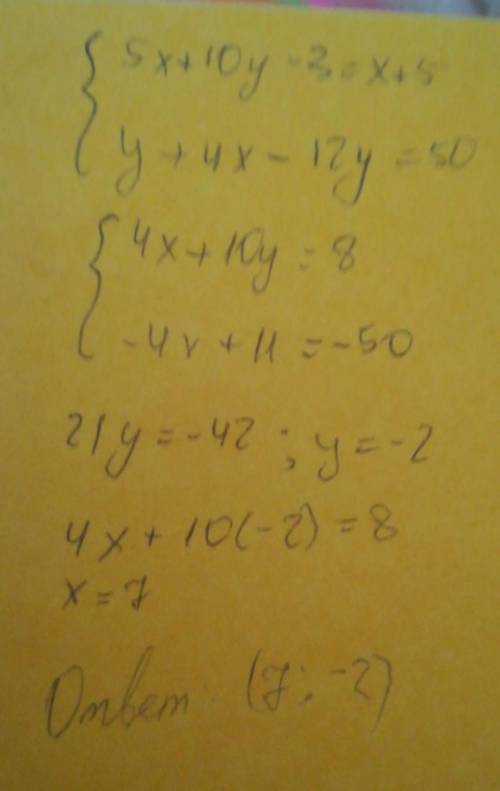 5x+10y-3=x+5
y+4x-12y=50
4x+10y=8
-4x+11=-50
21y=-42; y=-2
4x+10(-2)=8
x=7
Ответ. (7;-2)